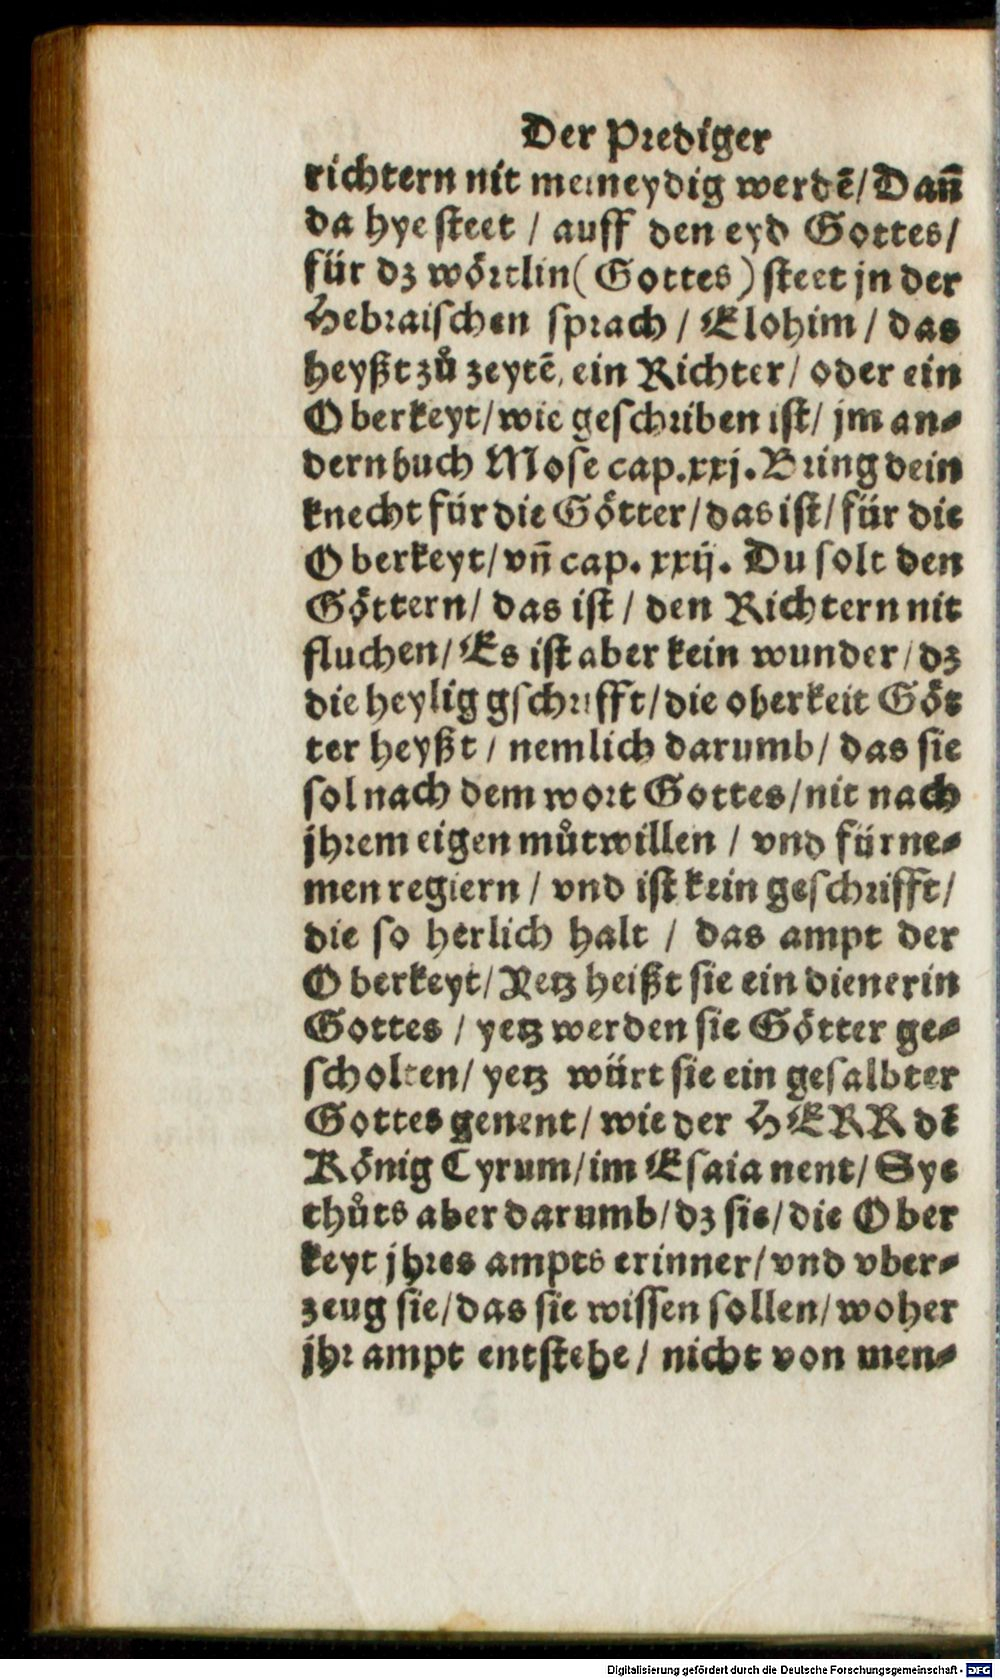 Der Prediger
richtern nit meineydig werdẽ/ Dañ
da hye steet / auff den eyd Gottes/
für dz woͤrtlin( Gottes ) steet jn der
Hebraischen sprach / Elohim / das
heyßt zů zeytẽ, ein Richter/ oder ein
Oberkeyt/ wie geschriben ist/ jm an⸗
dern buch Mose cap.xxj. Bring dein
knecht für die Goͤtter/ das ist/ für die
Oberkeyt/ vñ cap. xxij. Du solt den
Goͤttern/ das ist / den Richtern nit
fluchen/ Es ist aber kein wunder/ dz
die heylig gschrifft/ die oberkeit Goͤt
ter heyßt / nemlich darumb/ das sie
sol nach dem wort Gottes/ nit nach
jhrem eigen můtwillen / vnd fürne⸗
men regiern / vnd ist kein geschrifft/
die so herlich halt / das ampt der
Oberkeyt/ Yetz heißt sie ein dienerin
Gottes / yetz werden sie Goͤtter ge⸗
scholten/ yetz würt sie ein gesalbter
Gottes genent/ wie der HERR dẽ
Koͤnig Cyrum/ im Esaia nent/ Sye
thůts aber darumb/ dz sie/ die Ober
keyt jhres ampts erinner/ vnd vber⸗
zeug sie/ das sie wissen sollen/ woher
jhr ampt entstehe / nicht von men⸗
Digitalisierung gefördert durch die Deutsche Forschungsgemeinschaft - DFG